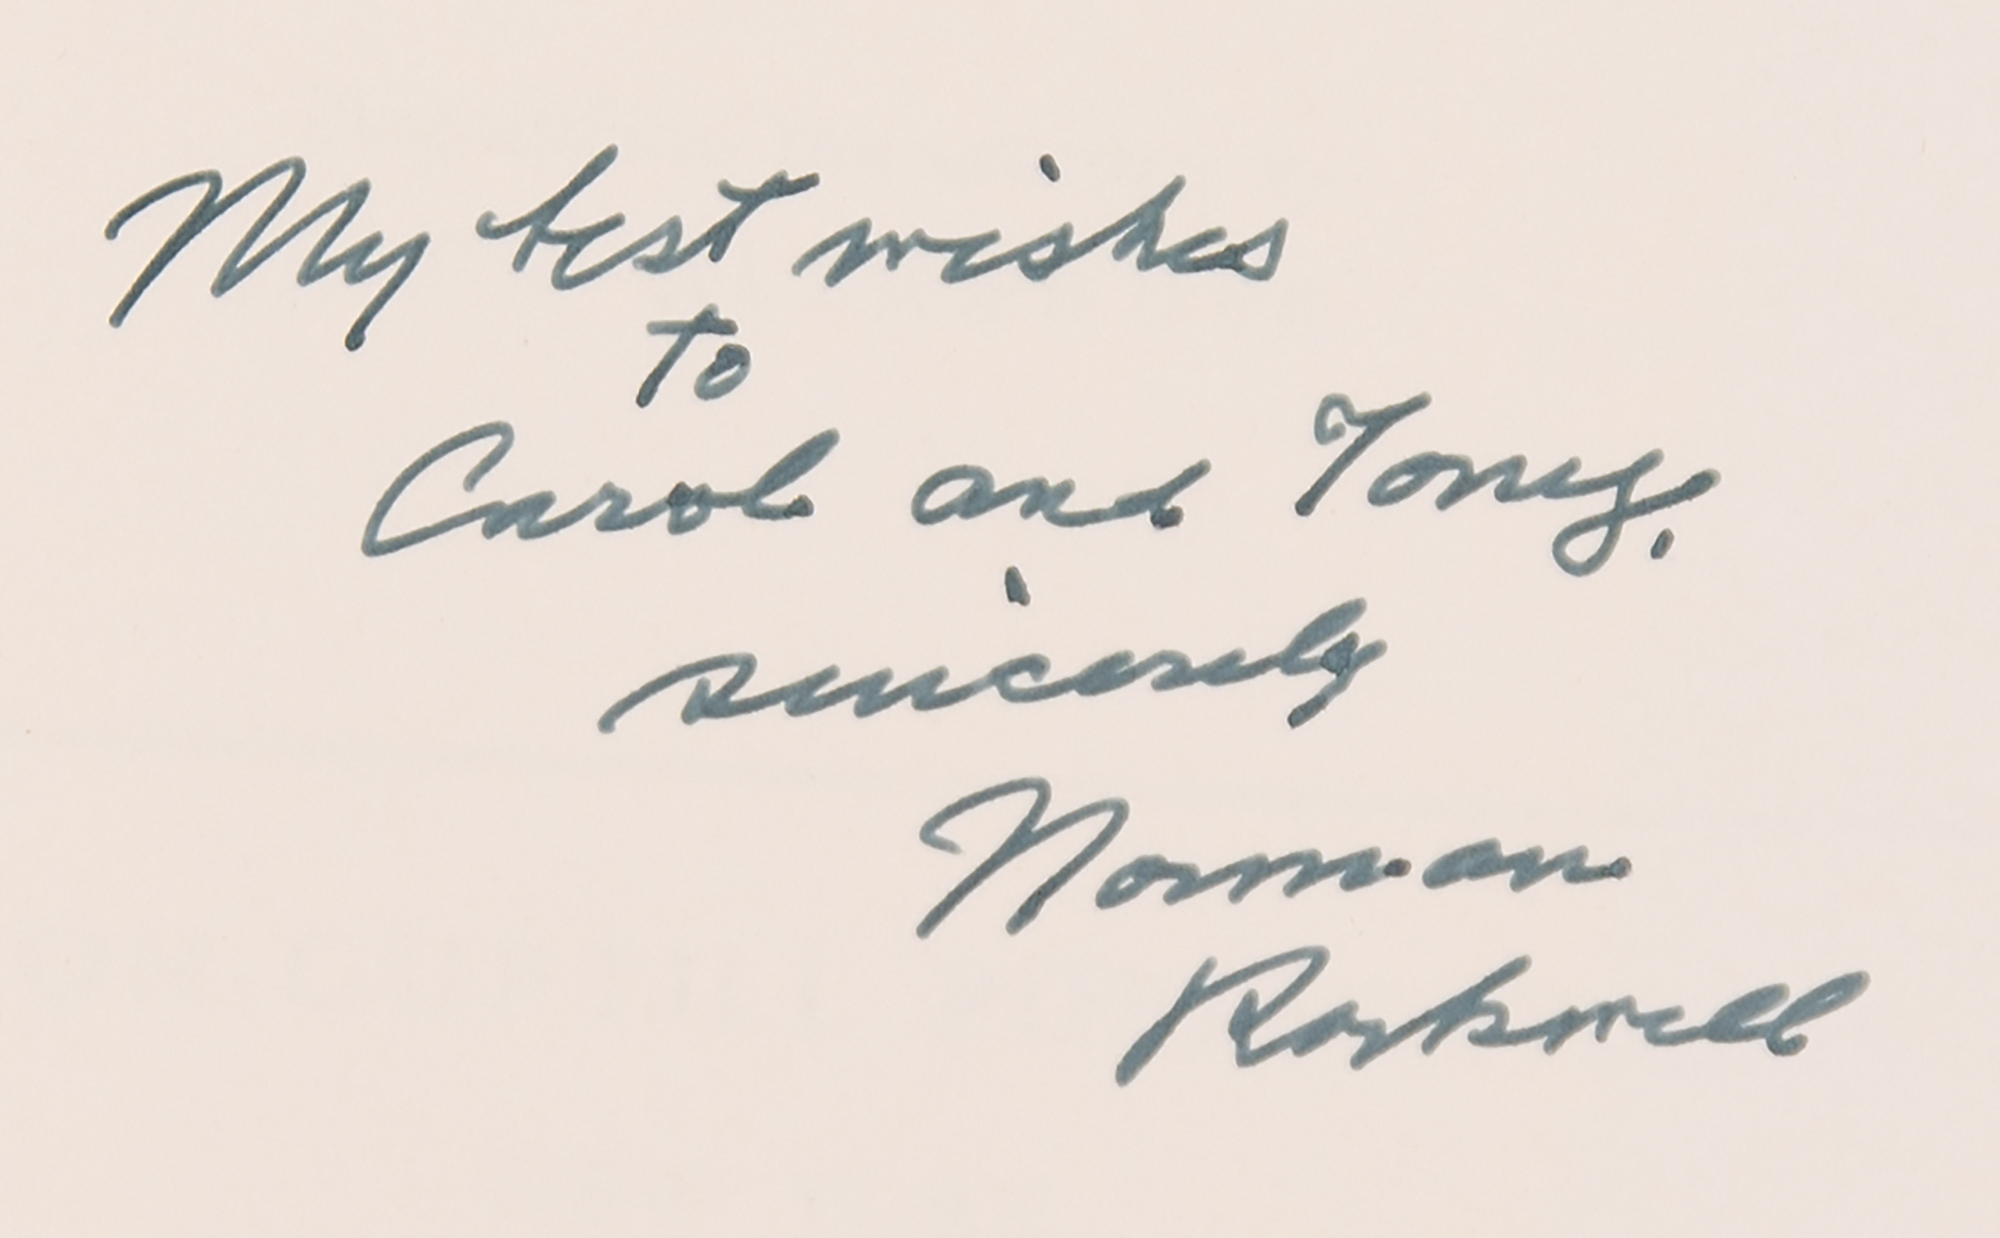 My best wishes
to
Carol and Tony,
sincerely
Norman
Rockwell